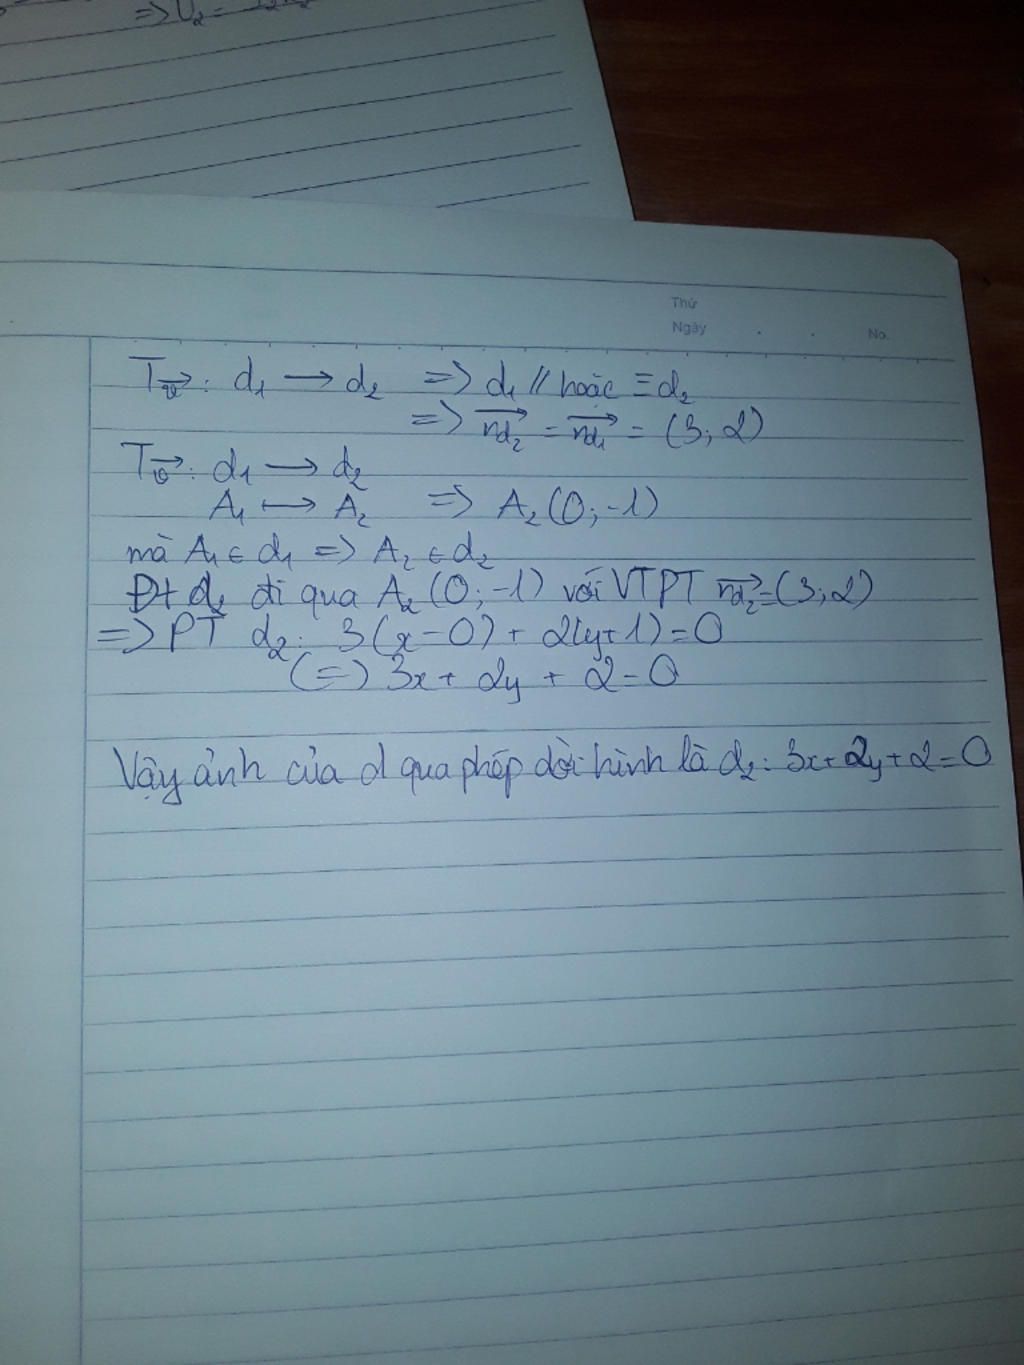 => U₂ =
Thứ
Ngày . . No.
T_v⃗ : d₁ → d₂ => d₁ // hoặc ≡ d₂
=> n⃗d₂ = n⃗d₁ = (3; 2)
T_v⃗ : d₁ → d₂
A₁ ↦ A₂ => A₂ (0; -1)
mà A₁ ∈ d₁ => A₂ ∈ d₂
Đt d₂ đi qua A₂ (0; -1) với VTPT n⃗d₂ = (3; 2)
=> PT d₂: 3(x-0) + 2(y+1) = 0
(=) 3x + 2y + 2 = 0
Vậy ảnh của d qua phép dời hình là d₂: 3x + 2y + 2 = 0